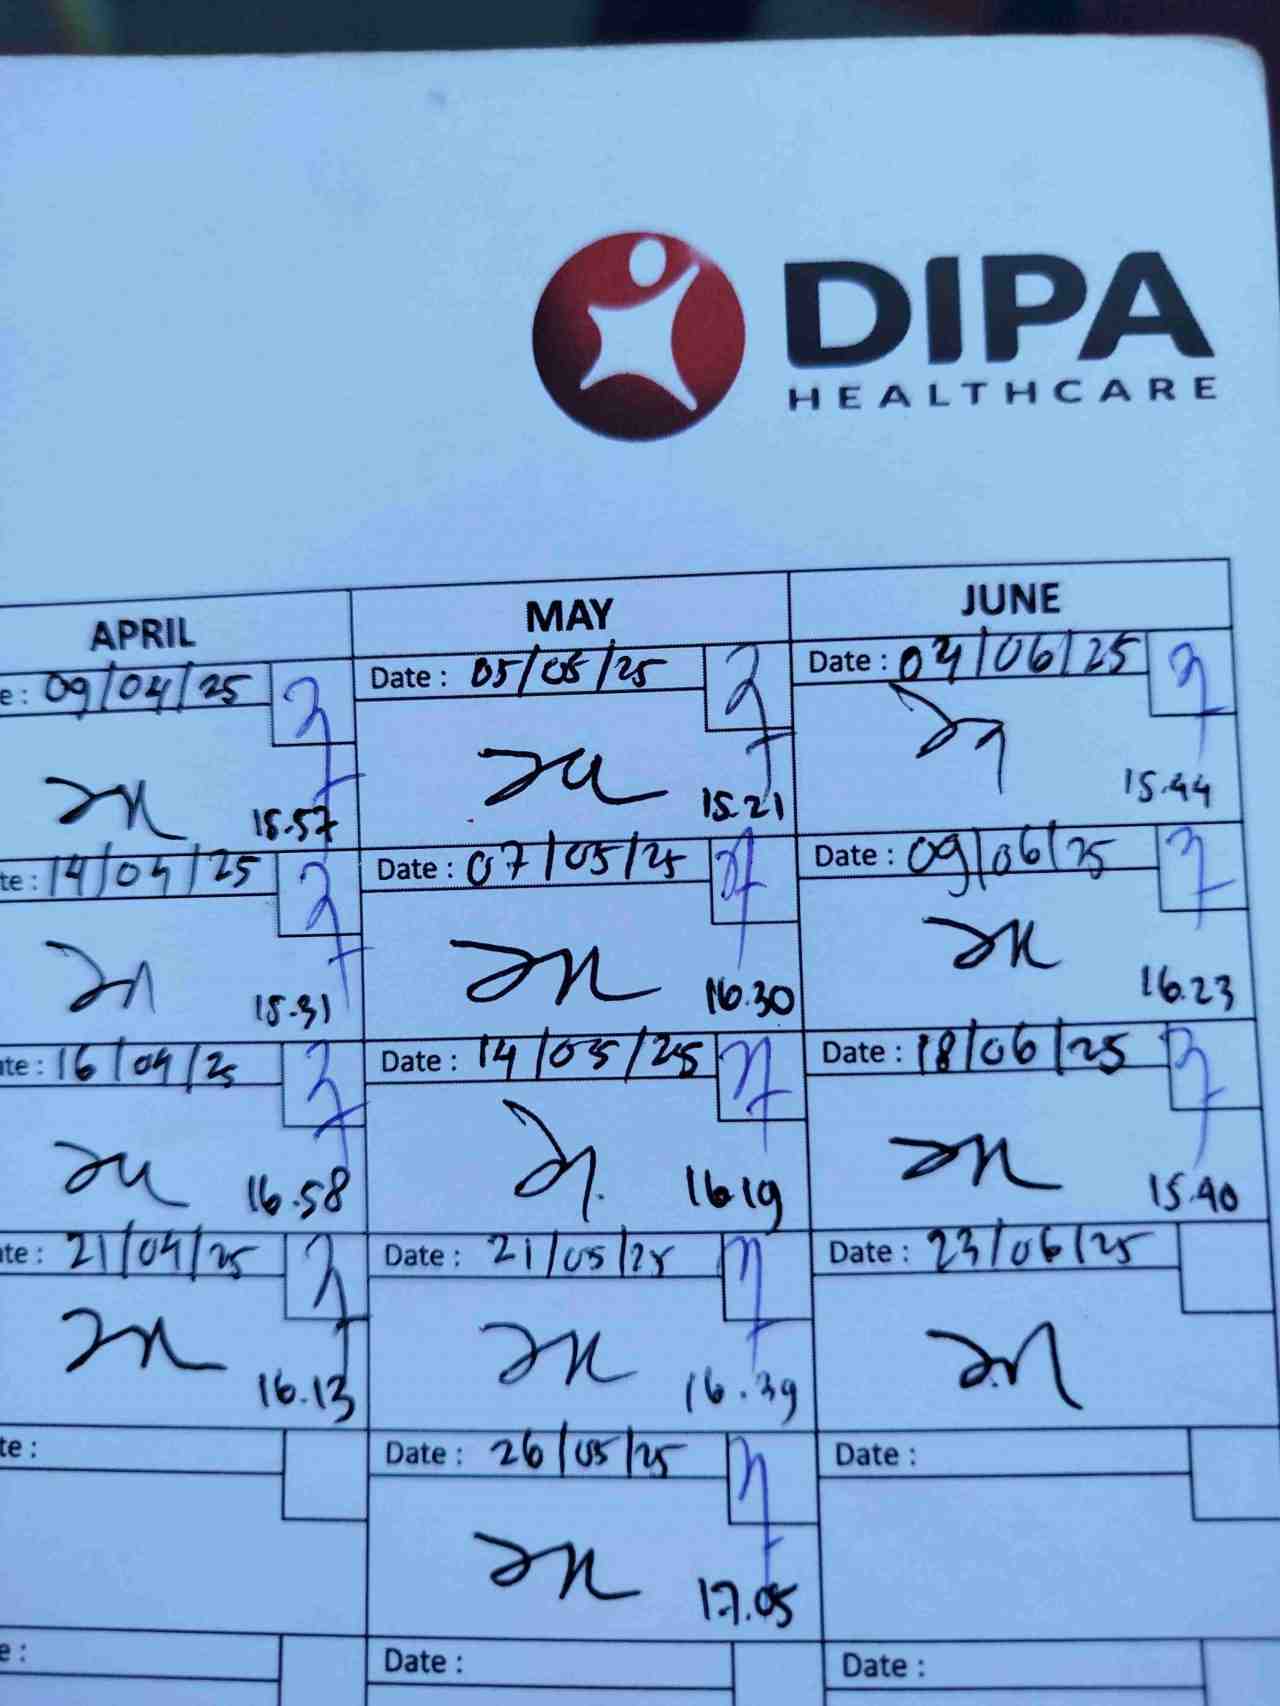 DIPA
HEALTHCARE
APRIL
MAY
JUNE
e : 09/04/25
Date : 05/05/25
Date : 04/06/25
15.57
15.21
15.44
te : 14/04/25
Date : 07/05/25
Date : 09/06/25
15.31
16.30
16.23
te : 16/04/25
Date : 14/05/25
Date : 18/06/25
16.58
16.19
15.40
te : 21/04/25
Date : 21/05/25
Date : 23/06/25
16.13
16.39
te :
Date : 26/05/25
Date :
17.05
e :
Date :
Date :